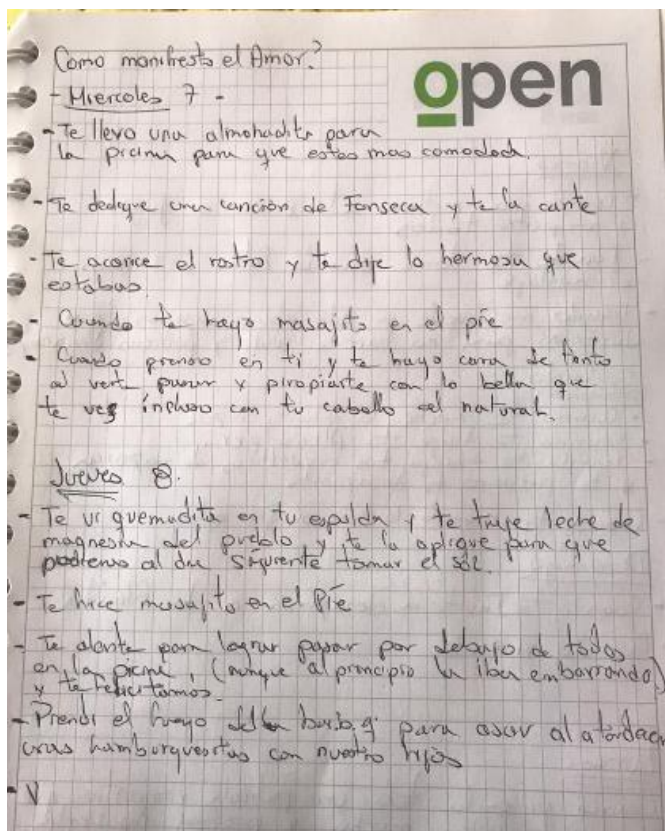 Como manifiesto el Amor?
open
- Miercoles 7 -
- Te llevo una almohadita para
la picina para que estes mas comoda
- Te dedique una canción de Fonseca y te la cante
- Te acarice el rostro y te dije lo hermosa que
estabas.
- Cuando te hago masajito en el pie
- Cuando pienso en ti y te hago cara de tonto
al verte pasar y piropiarte con lo bella que
te ves incluso con tu cabello al natural.
Jueves 8.
- Te vi quemadita en tu espalda y te traje leche de
magnesia del pueblo y te la aplique para que
podamos al dia siguiente tomar el sol.
- Te hice masajito en el Pie
- Te alente para lograr pasar por debajo de todos
en la picina, (aunque al principio la iba embarrando)
y te felicitamos.
- Prendi el fuego del barbiq para asar al atardecer
unas hamburguesitas con nuestro hijos
- V